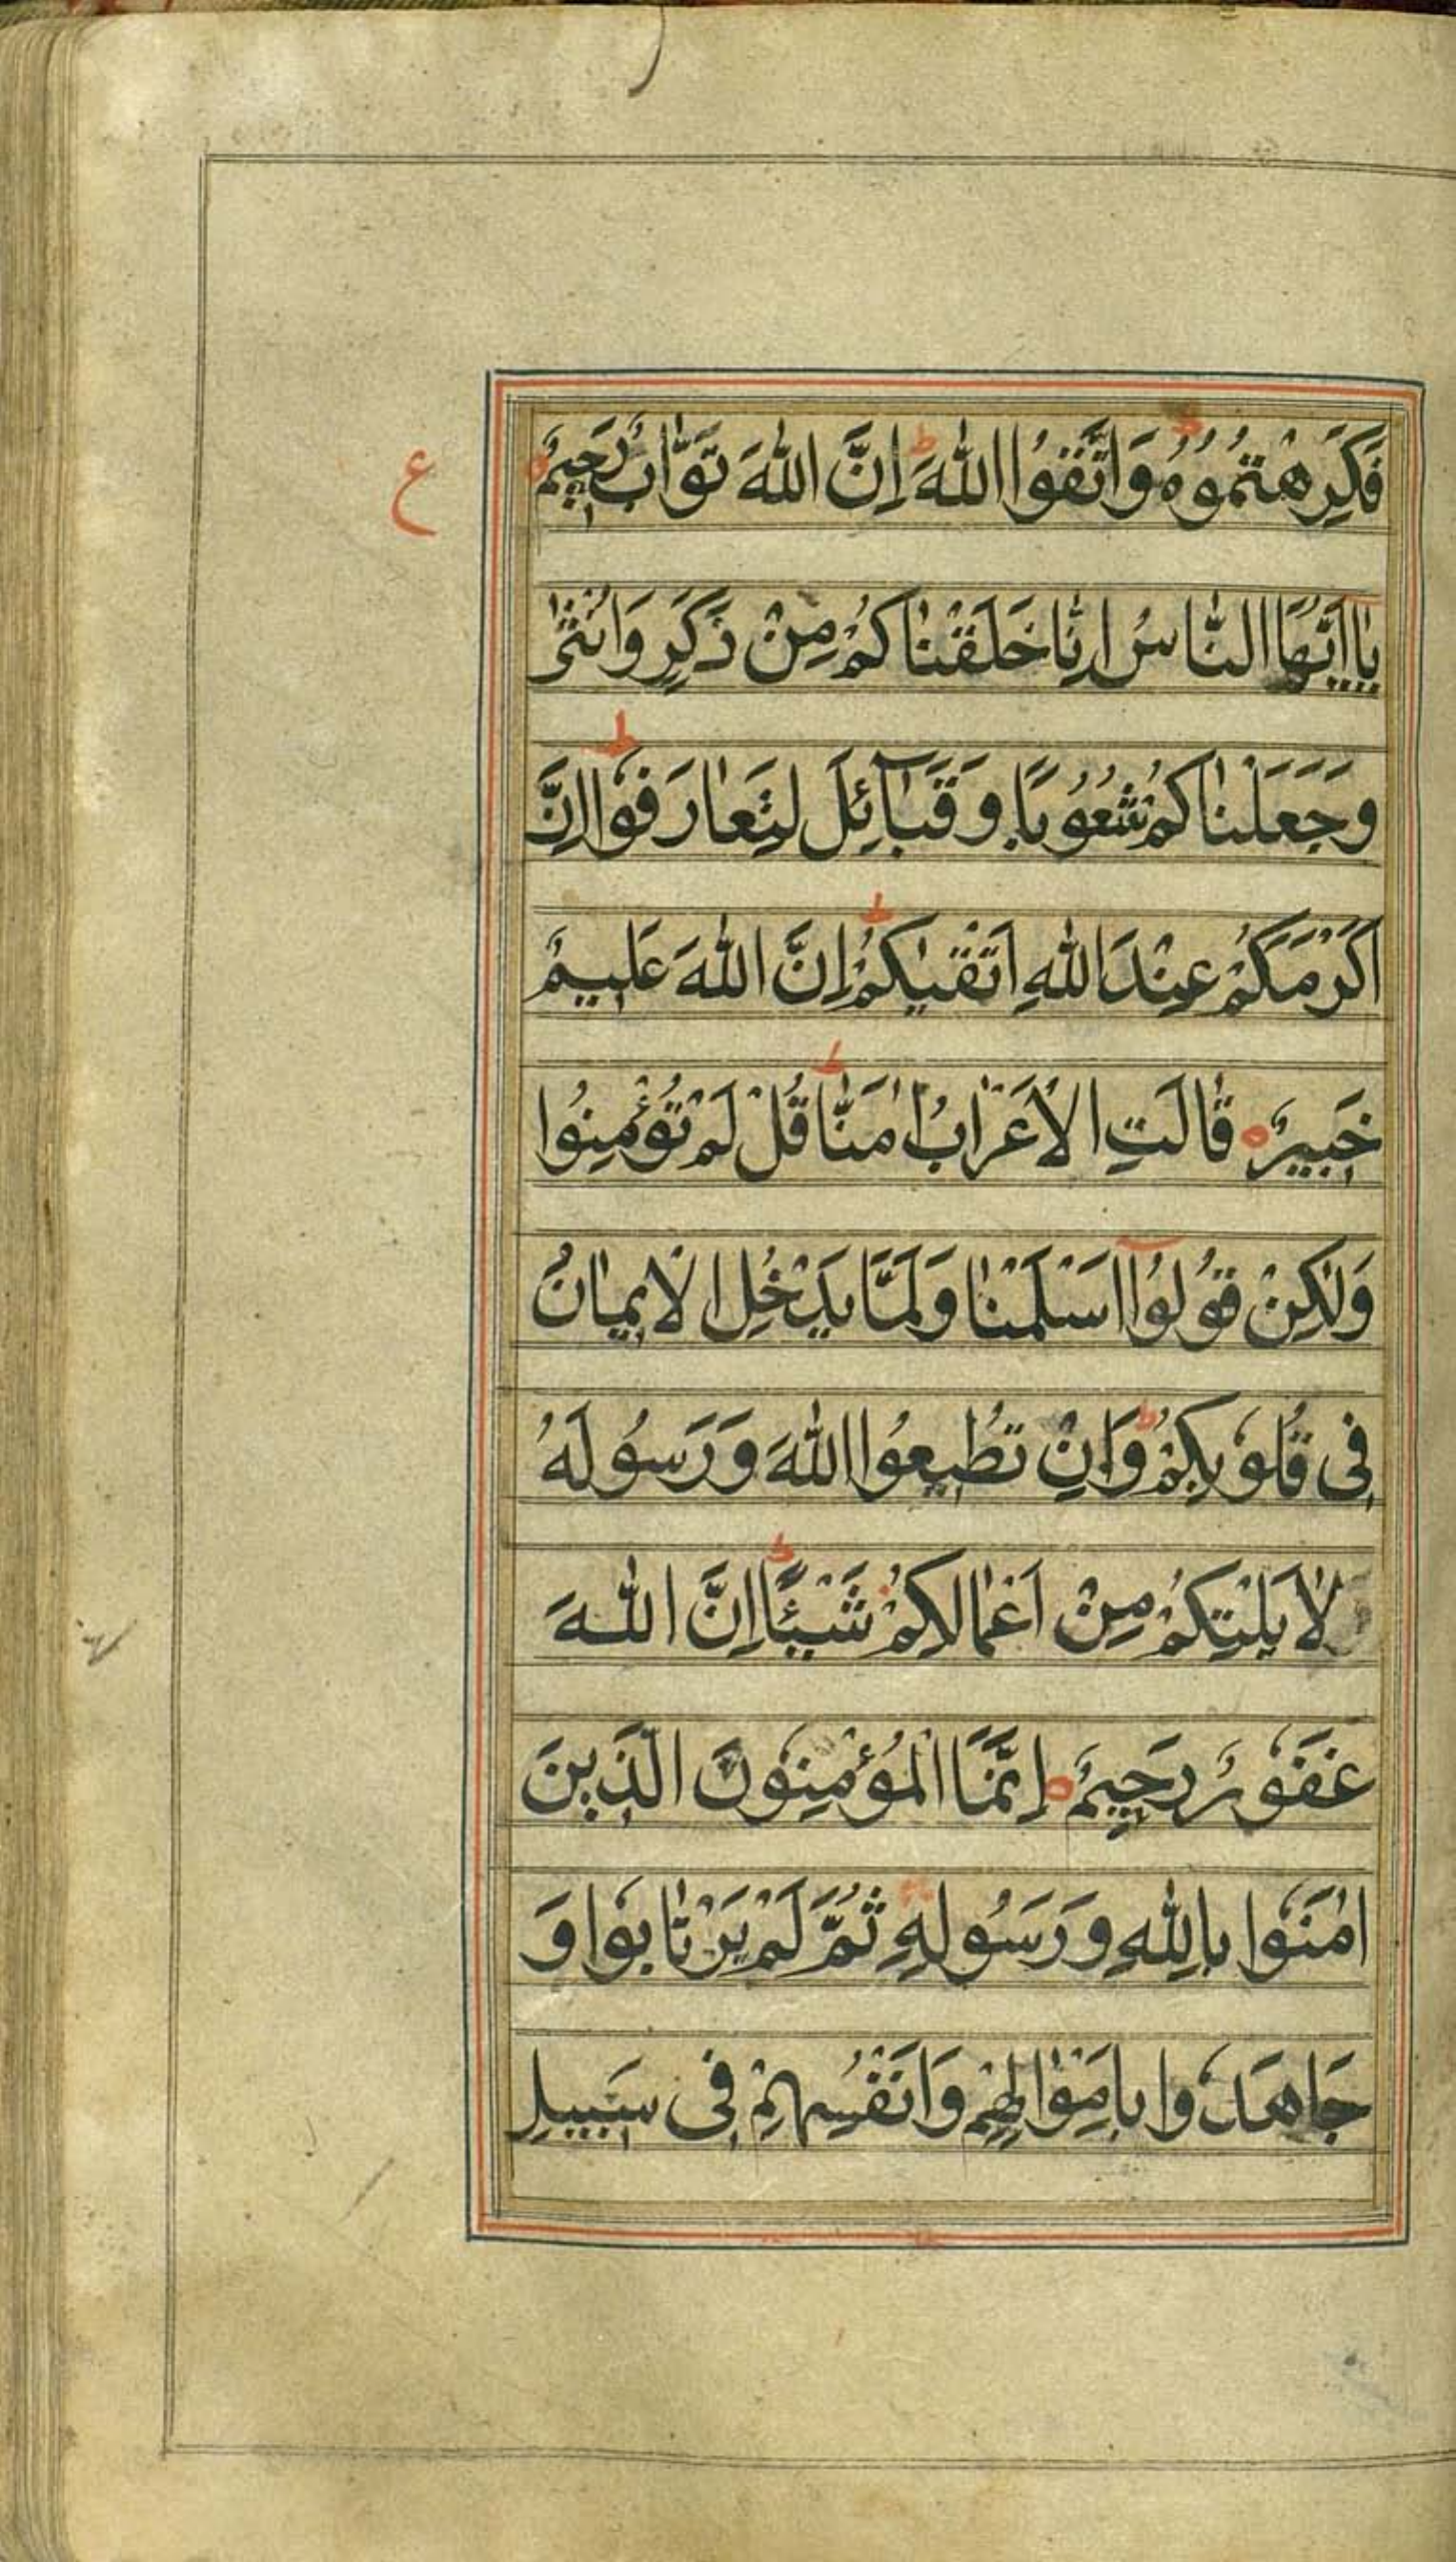 فَكَرِهْتُمُوهُ ؕ وَاتَّقُوا اللّٰهَ ؕ اِنَّ اللّٰهَ تَوَّابٌ رَحِيمٌ
ع
يٰا اَيُّهَا النّٰاسُ اِنّٰا خَلَقْنٰاكُمْ مِنْ ذَكَرٍ وَاُنْثٰى
وَجَعَلْنٰاكُمْ شُعُوبًا وَقَبَآئِلَ لِتَعٰارَفُوا ؕ اِنَّ
اَكْرَمَكُمْ عِنْدَ اللّٰهِ اَتْقٰيكُمْ ؕ اِنَّ اللّٰهَ عَلِيمٌ
خَبِيرٌ ه قٰالَتِ الْاَعْرٰابُ اٰمَنّٰا ؕ قُلْ لَمْ تُؤْمِنُوا
وَلٰكِنْ قُولُوٓا اَسْلَمْنٰا وَلَمَّا يَدْخُلِ الْاِيمٰانُ
فِى قُلُوبِكُمْ ؕ وَاِنْ تُطِيعُوا اللّٰهَ وَرَسُولَهُ
لٰا يَلِتْكُمْ مِنْ اَعْمٰالِكُمْ شَيْئًا ؕ اِنَّ اللّٰهَ
غَفُورٌ رَحِيمٌ ه اِنَّمَا الْمُؤْمِنُونَ الَّذِينَ
اٰمَنُوا بِاللّٰهِ وَرَسُولِهِ ثُمَّ لَمْ يَرْتٰابُوا وَ
جَاهَدُوا بِاَمْوٰالِهِمْ وَاَنْفُسِهِمْ فِى سَبِيلِ